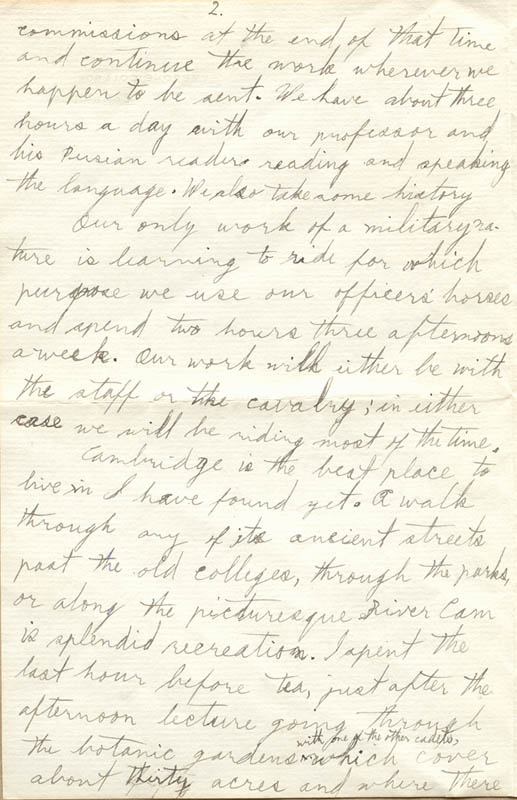 2.
commissions at the end of that time
and continue the work wherever we
happen to be sent. We have about three
hours a day with our professor and
his Persian reader reading and speaking
the language. We also take some history
Our only work of a military na-
ture is learning to ride for which
purpose we use our officers' horses
and spend two hours three afternoons
a week. Our work will either be with
the staff or the cavalry; in either
case we will be riding most of the time.
Cambridge is the best place to
live in I have found yet. A walk
through any of its ancient streets
past the old colleges, through the parks,
or along the picturesque River Cam
is splendid recreation. I spent the
last hour before tea, just after the
afternoon lecture going through
with one of the other cadets,
the botanic gardens which cover
about thirty acres and where there